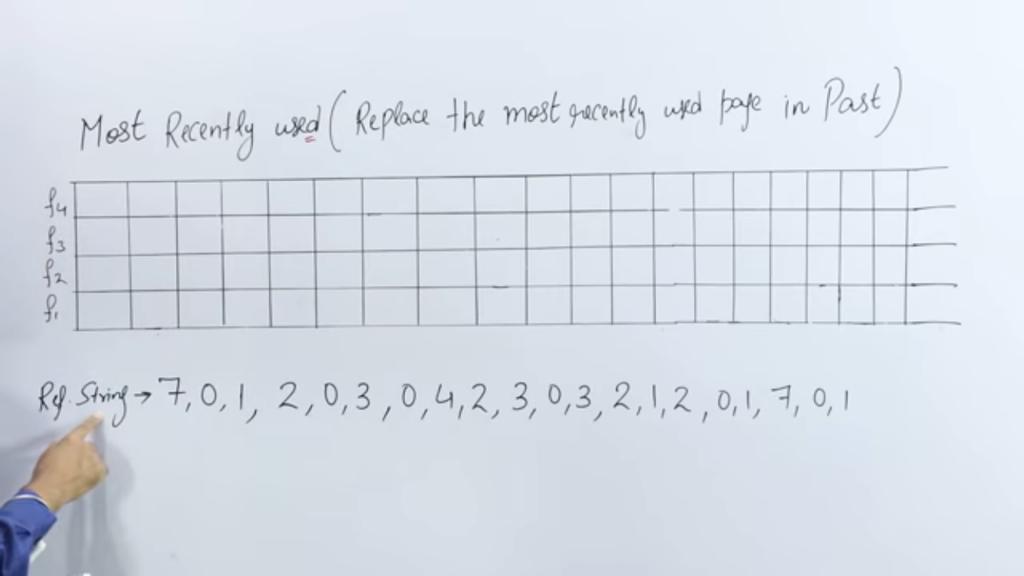 Most Recently used (Replace the most recently used page in Past)
f4
f3
f2
f1
Ref. String → 7, 0, 1, 2, 0, 3, 0, 4, 2, 3, 0, 3, 2, 1, 2, 0, 1, 7, 0, 1